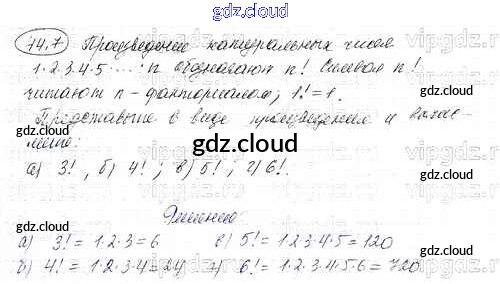 gdz.cloud
14.7 Произведение натуральных чисел
1·2·3·4·5·...·n обозначают n! Символ n!
читают n-факториалом, 1!=1.
gdz.cloud
Представьте в виде произведения и вычис-
лите:
а) 3! , б) 4! ; в) 5! , г) 6!.
gdz.cloud
Решение:
а) 3! = 1·2·3=6 в) 5! = 1·2·3·4·5=120
б) 4! = 1·2·3·4=24 г) 6! = 1·2·3·4·5·6=720
gdz.cloud